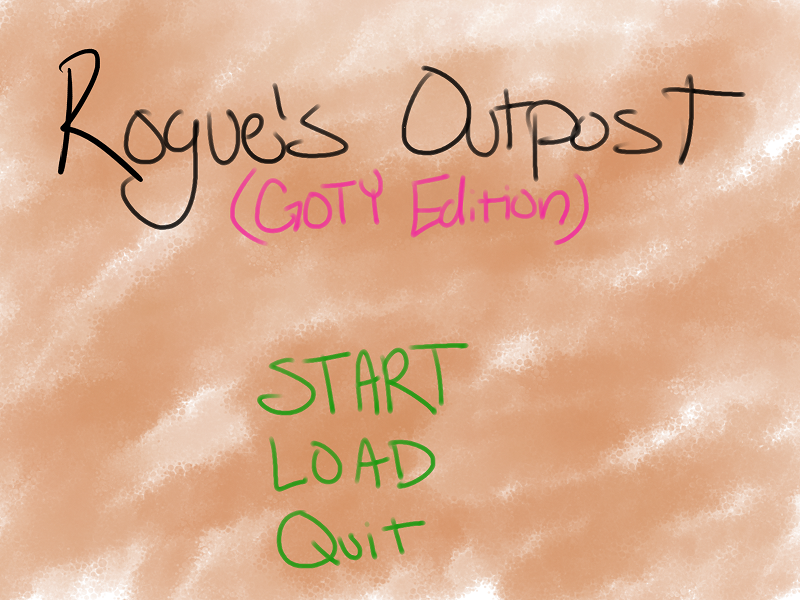 Rogue's Outpost
(GOTY Edition)
START
LOAD
Quit